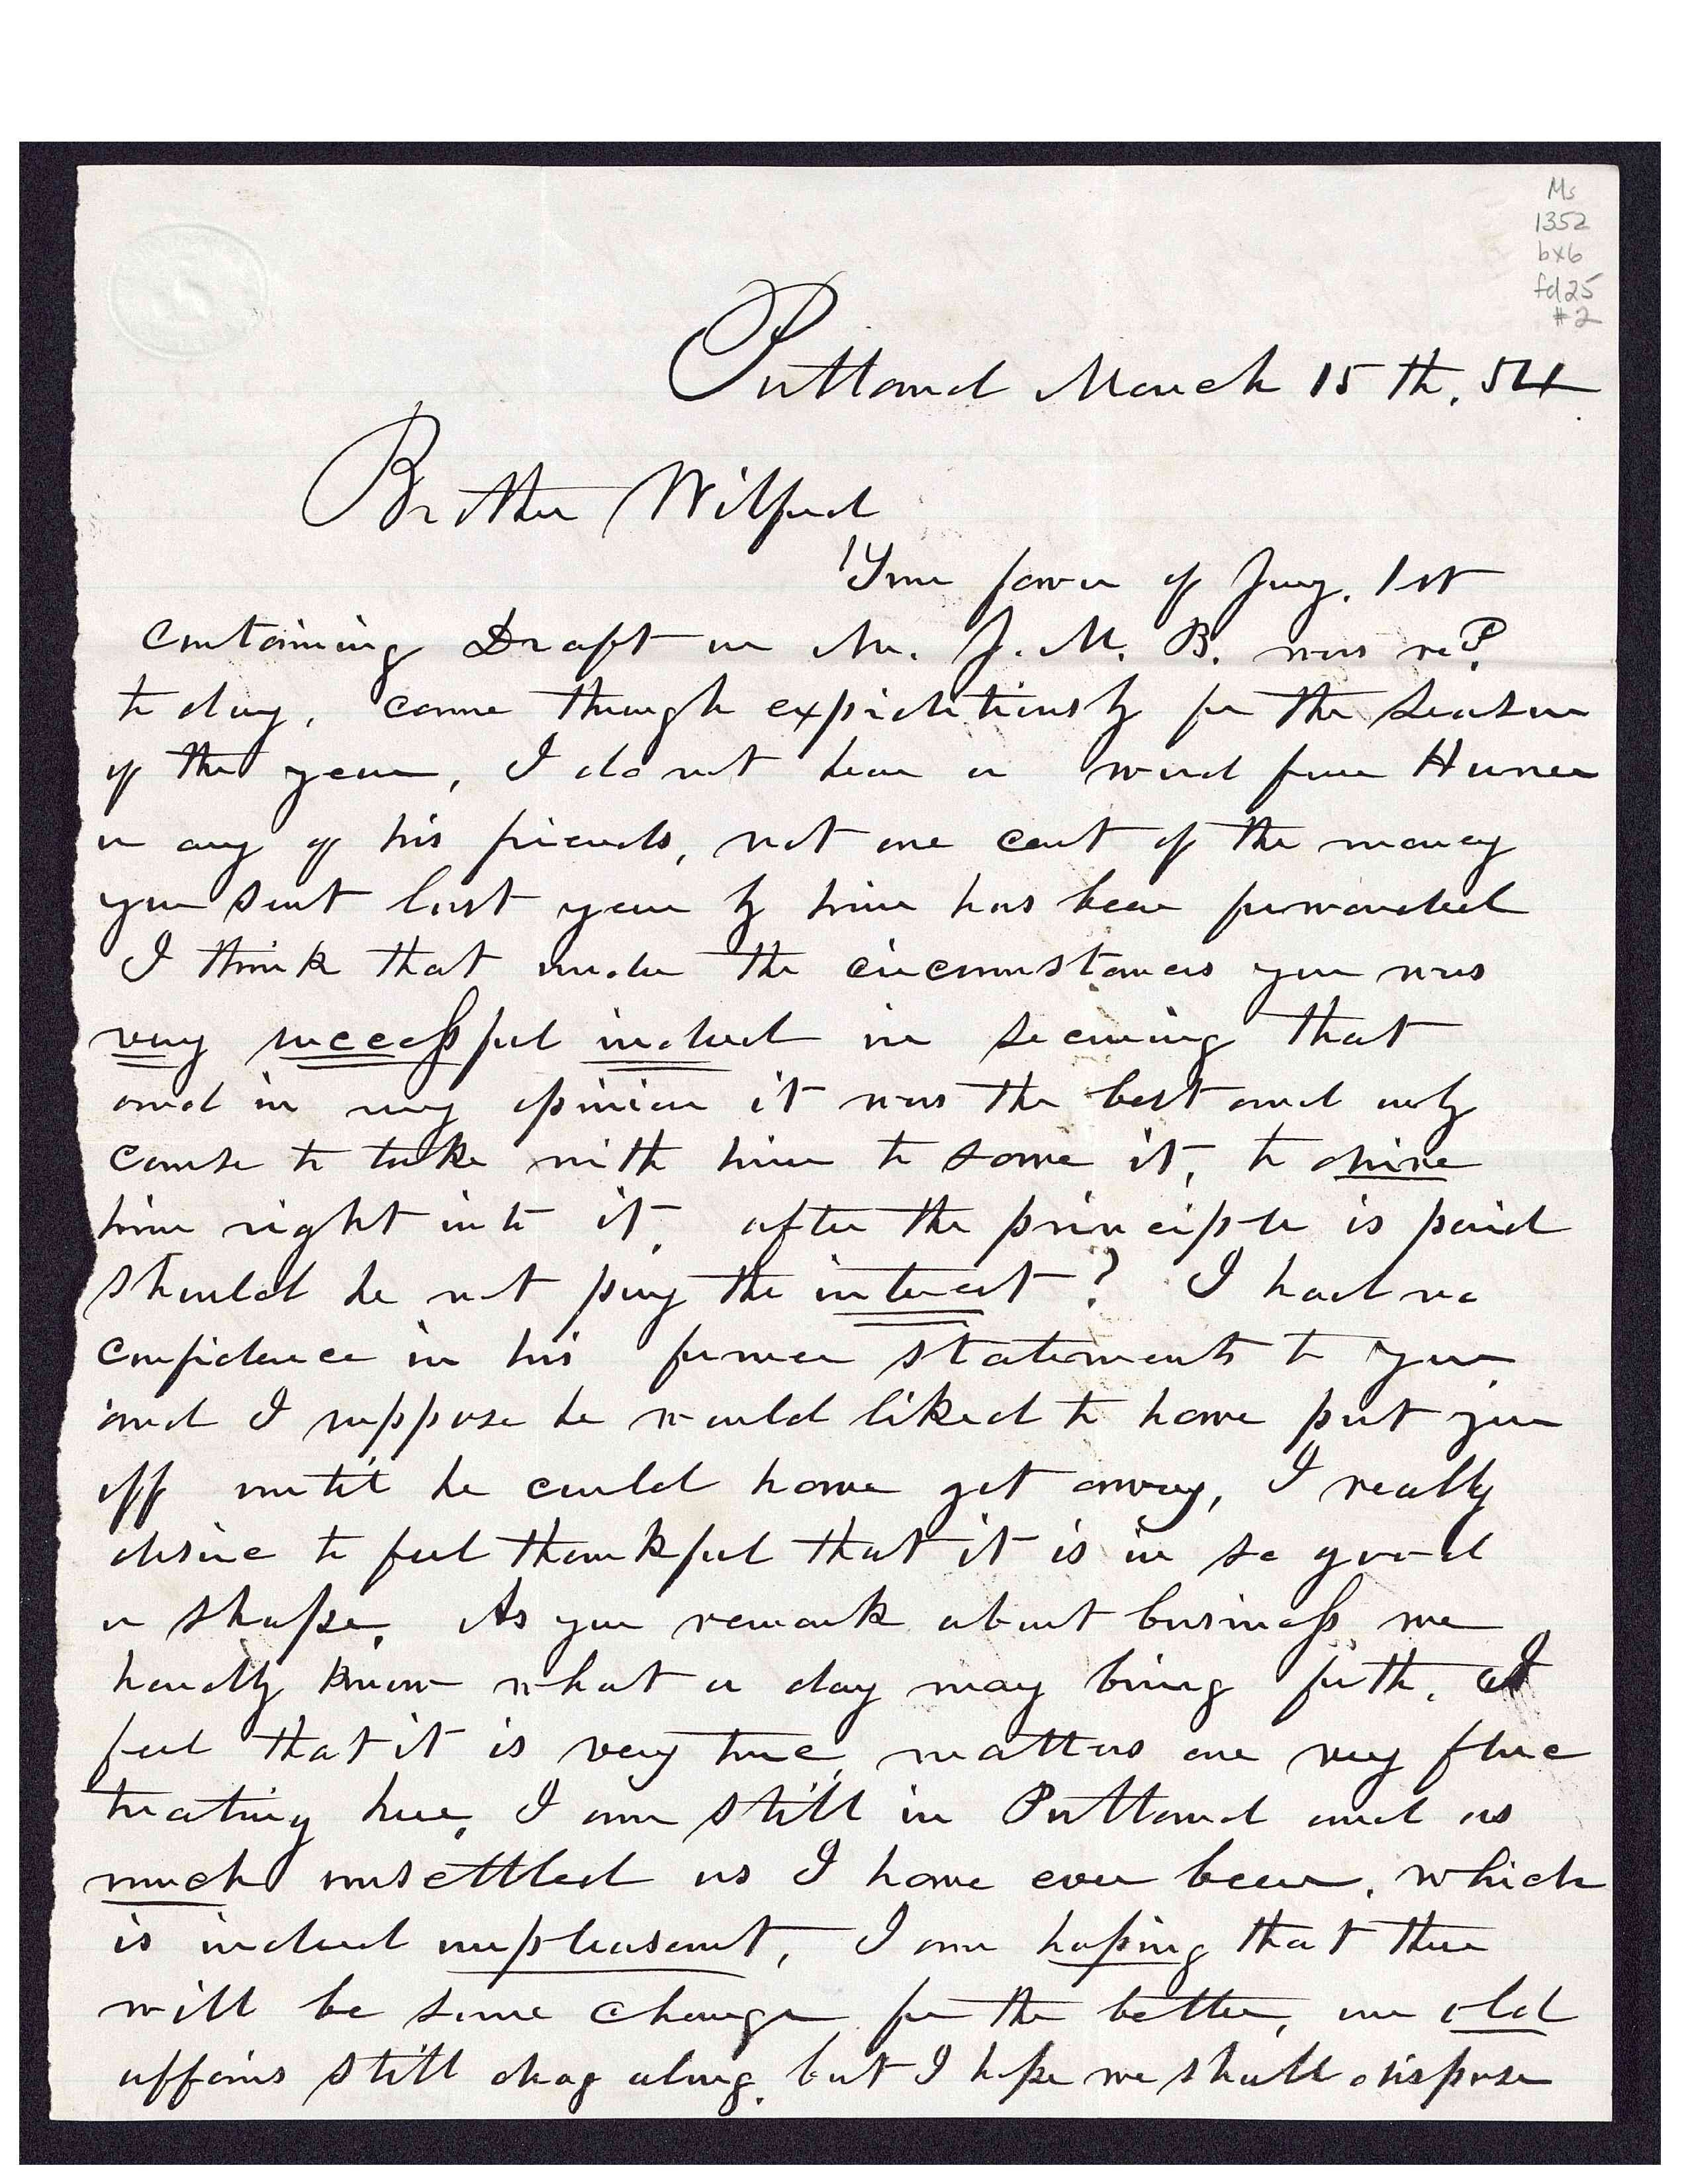 Ms
1352
bx6
fd25
#2
Portland March 15th. 54
Brother Wilford
Your favor of Jany. 1st
containing Draft on Mr. J. M. B. was recd.
to day, came through expidictiously for the season
of the year, I do not hear a word from
or any of his friends, not one cent of the money
you sent last year by him has been forwarded
I think that under the circumstances you was
very successful indeed in securing that
and in my opinion it was the best and only
course to take with him to save it, to drive
him right into it, after the principle is paid
should he not pay the interest? I had no
confidence in his former statements to you,
and I suppose he would liked to have put you
off until he could have got away, I really
desire to feel thankful that it is in so good
a shape, As you remark about business we
hardly know what a day may bring forth. I
feel that it is very true, matters are very fluc
tuating here, I am still in Portland and as
much unsettled as I have ever been, which
is indeed unpleasant, I am hoping that there
will be some change for the better, our old
affairs still drag along, but I hope we shall dispose